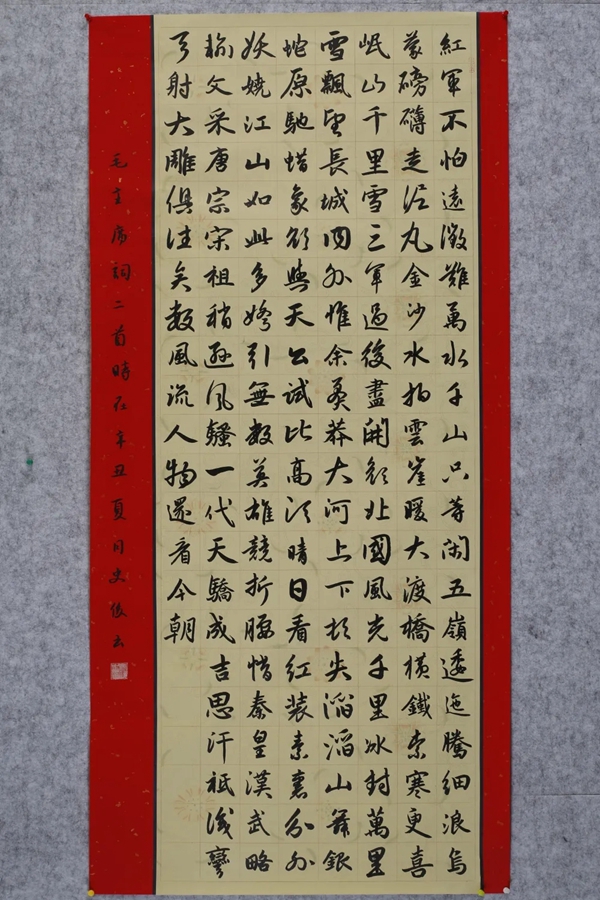 紅軍不怕遠徵難萬水千山只等閑五嶺逶迤騰細浪烏
蒙磅礴走泥丸金沙水拍雲崖暖大渡橋橫鐵索寒更喜
岷山千里雪三軍過後盡開顔北國風光千里冰封萬里
雪飄望長城內外惟余莽莽大河上下頓失滔滔山舞銀
蛇原馳蜡象欲與天公試比高須晴日看紅装素裹分外
妖嬈江山如此多嬌引無數英雄競折腰惜秦皇漢武略
輸文采唐宗宋祖稍遜風騷一代天驕成吉思汗祗識彎
弓射大雕俱往矣數風流人物還看今朝
毛主席詞二首時在辛丑夏月史俊云